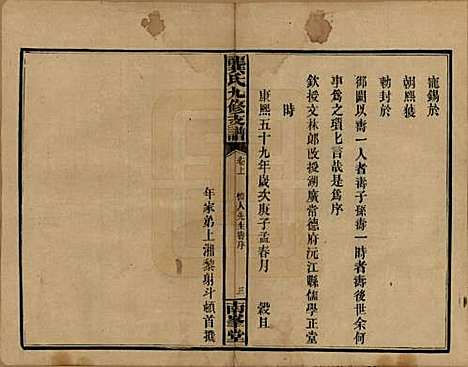 寵錫於
朝熙獲
勅封於
御闕以壽一人者壽子孫壽一時者壽後世余何
事為之瑣匕言哉是為序
欽授文林郎改授湖廣常德府沅江縣儒學正堂
時
康熙五十九年歲次庚子孟春月 穀旦
年家弟上湘黎射斗頓首撰
龔氏九修支譜
卷上 人先生壽序 三
南峯堂